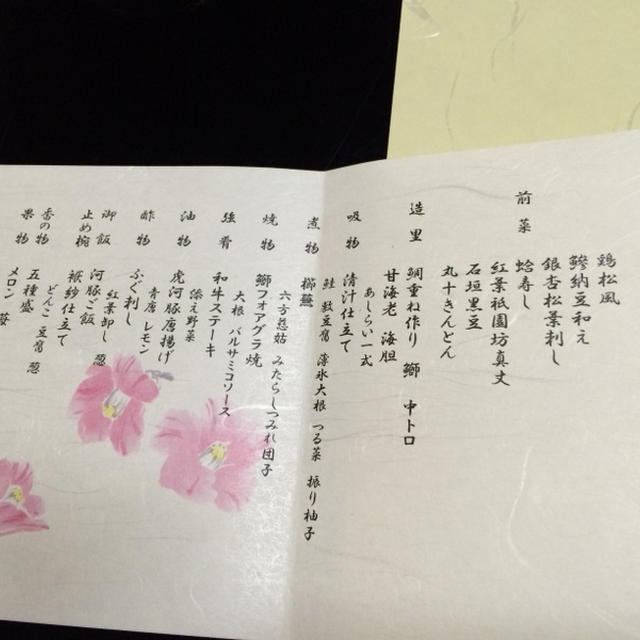 前菜
鶏松風
鰺納豆和え
銀杏松葉刺し
蛤寿し
紅葉祇園坊真丈
石垣黒豆
丸十きんとん
造里
鯛重ね作り 鰤 中トロ
甘海老 海胆
あしらい一式
吸物
清汁仕立て
鮭 豆腐 薄氷大根 つる菜 振り柚子
煮物
六方慈姑 みたらしつみれ団子
焼物
鰤フォアグラ焼
大根 バルサミコソース
強肴
和牛ステーキ
添え野菜
油物
虎河豚唐揚げ
青唐 レモン
酢物
ふぐ刺し
紅葉卸し 葱
御飯
河豚ご飯
止め椀
袱紗仕立て
どんこ 豆腐 葱
香の物
五種盛
果物
メロン 苺